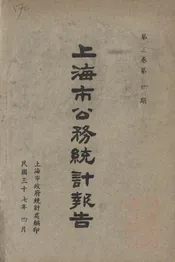 第二卷第一期
上海市公務統計報告
上海市政府統計處編印
民國三十七年四月